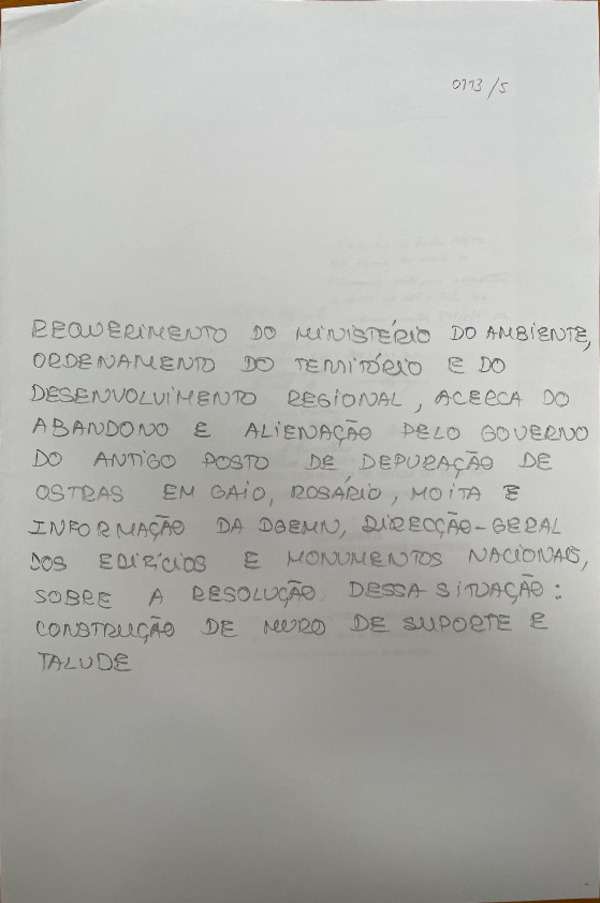 0113/5
REQUERIMENTO DO MINISTÉRIO DO AMBIENTE,
ORDENAMENTO DO TERRITÓRIO E DO
DESENVOLVIMENTO REGIONAL, ACERCA DO
ABANDONO E ALIENAÇÃO PELO GOVERNO
DO ANTIGO POSTO DE DEPURAÇÃO DE
OSTRAS EM GAIO, ROSÁRIO, MOITA E
INFORMAÇÃO DA DGEMN, DIRECÇÃO-GERAL
DOS EDIFÍCIOS E MONUMENTOS NACIONAIS,
SOBRE A RESOLUÇÃO DESSA SITUAÇÃO:
CONSTRUÇÃO DE MURO DE SUPORTE E
TALUDE